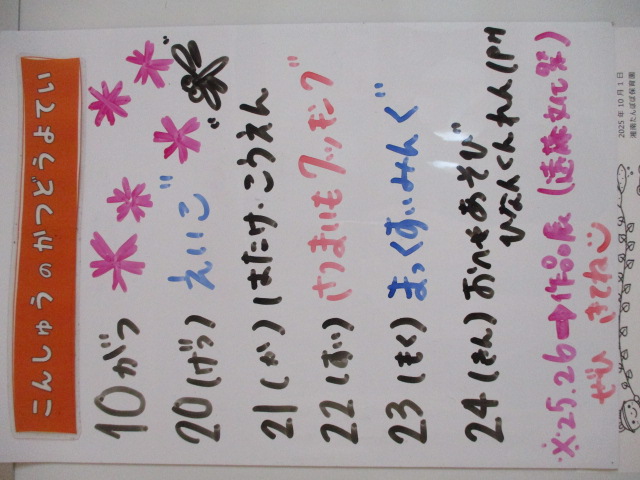 こんしゅうのかつどうよてい
10がつ
20(げつ) えいご
21(か) はたけ・こうえん
22(すい) さつまいもクッキング
23(もく) まっくすいみんぐ
24(きん) おへやあそび
ひなんくんれん(PM
※25.26→作品展(遠藤文化祭)
ぜひ きてね
2025年10月1日
湘南たんぽぽ保育園